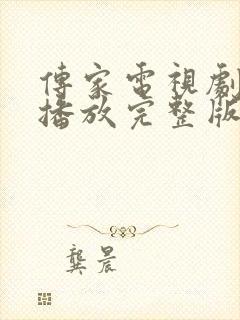 傳家電視劇
播放完整版
龔晨